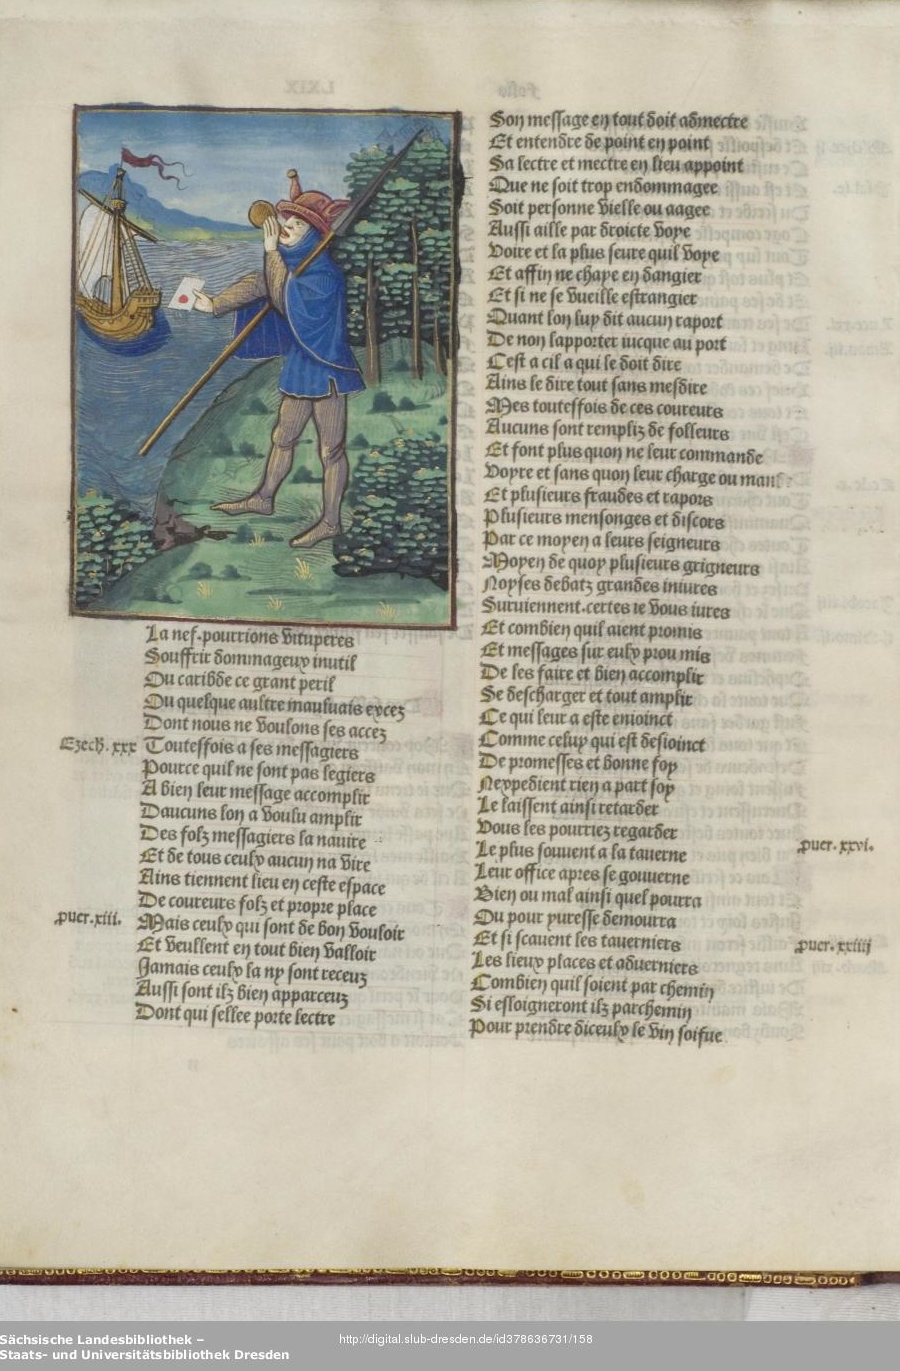 La nef. pourrions vituperes
Souffrir dommageux inutil
Ou caribde ce grant peril
Ou quelque aultre mauluais excez
Dont nous ne voulons ses accez
Ezech. xxx
Touteffois a ses messagiers
Pource quil ne sont pas legiers
A bien leur message accomplir
Daucuns lon a voulu amplir
Des folz messagiers la nauire
Et de tous ceulx aucun na vire
Ains tiennent lieu en ceste espace
De coureurs folz et propre place
puer. xiii.
Mais ceulx qui sont de bon vouloir
Et veullent en tout bien valloir
Jamais ceulx la ny sont receuz
Aussi sont ilz bien apparceuz
Dont qui sellee porte lectre
Son message en tout doit admectre
Et entendre de point en point
Sa lectre et mectre en lieu appoint
Que ne soit trop endommagee
Soit personne vielle ou aagee
Aussi aille par droicte voye
Voire et la plus seure quil voye
Et affin ne chaye en dangier
Et si ne se vueille estrangier
Quant lon luy dit aucun raport
De non lapporter iucque au port
Cest a cil a qui le doit dire
Ains le dire tout sans mesdire
Mes touteffois de ces coureurs
Aucuns sont rempliz de folleurs
Et font plus quon ne leur commande
Voyre et sans quon leur charge ou
Et plusieurs fraudes et rapors
Plusieurs mensonges et discors
Par ce moyen a leurs seigneurs
Moyen de quoy plusieurs grigneurs
Noyses debatz grandes iniures
Suruiennent. certes ie vous iures
Et combien quil aient promis
Et messages sur eulx prou mis
De les faire et bien accomplir
Se descharger et tout amplir
Ce qui leur a este enioinct
Comme celuy qui est desioinct
De promesses et bonne foy
Nexpedient rien a part soy
Le laissent ainsi retarder
Vous les pourriez regarder
Le plus souuent a la tauerne
puer. xxvi.
Leur office apres se gouuerne
Bien ou mal ainsi quel pourra
Ou pour yuresse demourra
Et si scauent les tauerniers
puer. xxiiii
Les lieux places et aduerniers
Combien quil soient par chemin
Si essoigneront ilz parchemin
Pour prendre diceulx le vin soifue
Sächsische Landesbibliothek –
Staats- und Universitätsbibliothek Dresden
http://digital.slub-dresden.de/id378636731/158